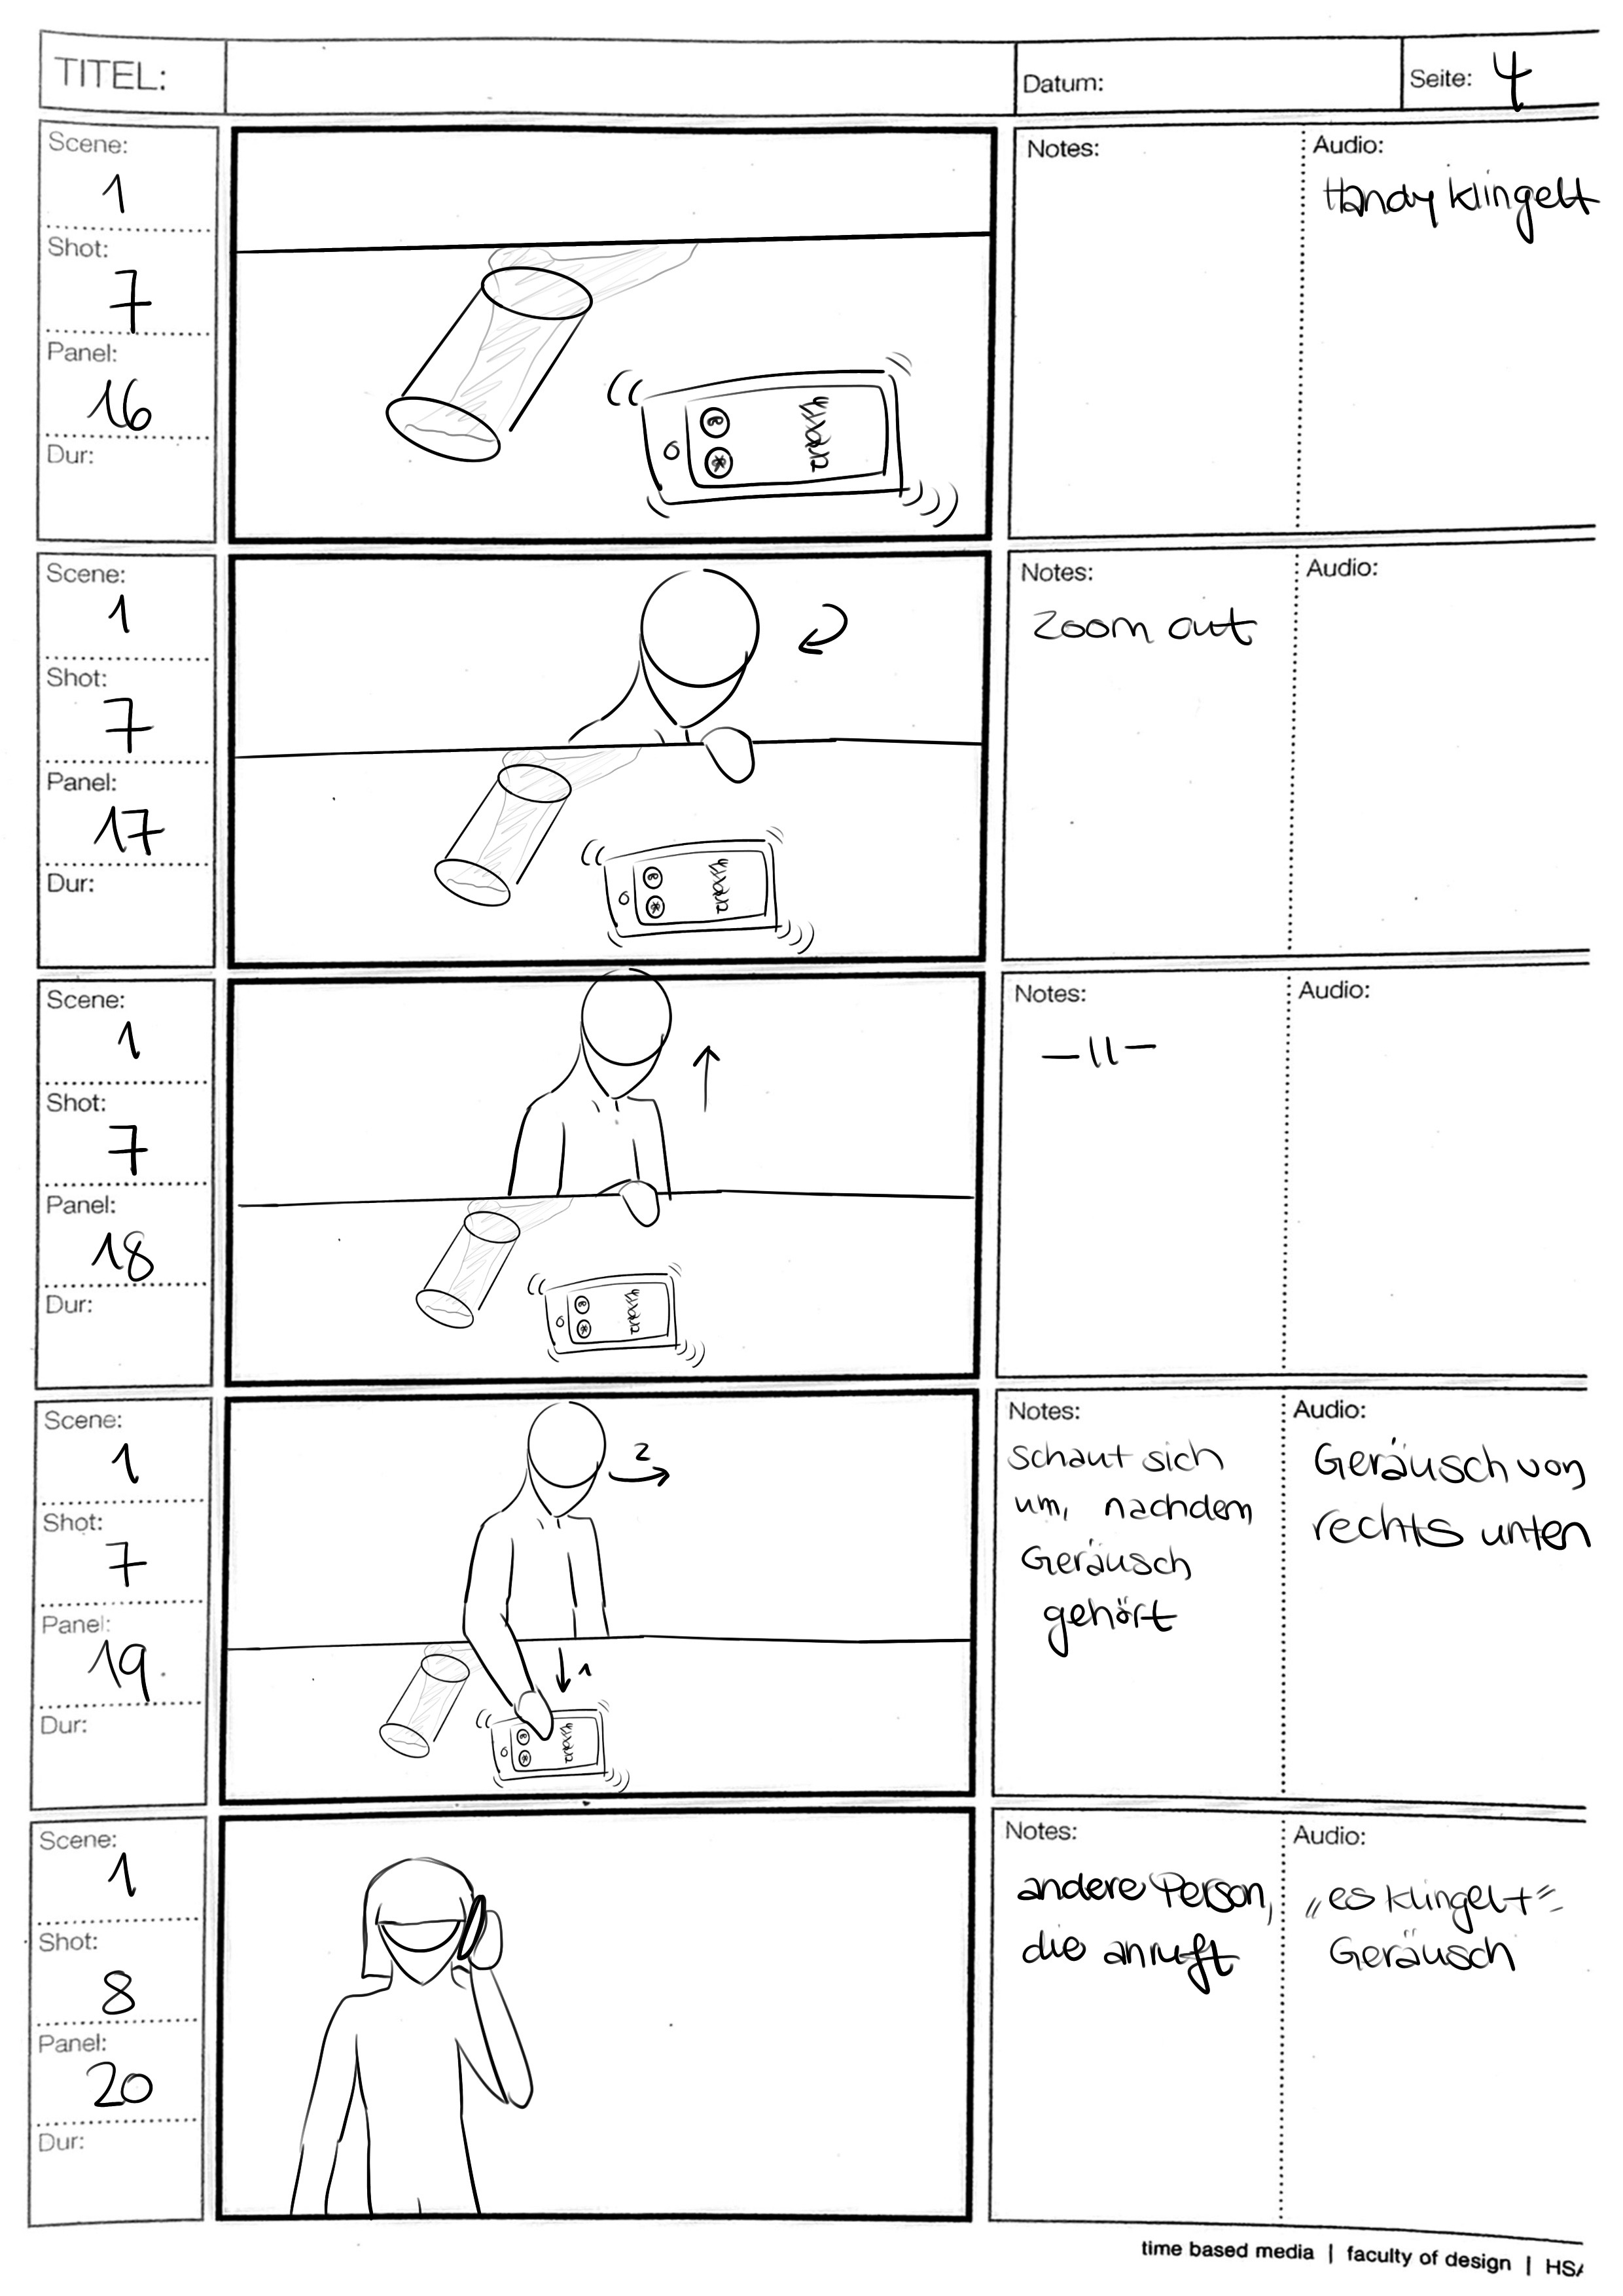 TITEL:
Datum:
Seite: 4
Scene:
1
Shot:
7
Panel:
16
Dur:
Notes:
Audio:
Handy klingelt
Scene:
1
Shot:
7
Panel:
17
Dur:
Notes:
Zoom out
Audio:
Scene:
1
Shot:
7
Panel:
18
Dur:
Notes:
—11—
Audio:
Scene:
1
Shot:
7
Panel:
19
Dur:
2
1
Notes:
Schaut sich
um, nachdem
Geräusch
gehört
Audio:
Geräusch von
rechts unten
Scene:
1
Shot:
8
Panel:
20
Dur:
Notes:
andere Person,
die anruft
Audio:
„es klingelt"
Geräusch
time based media | faculty of design | HSA